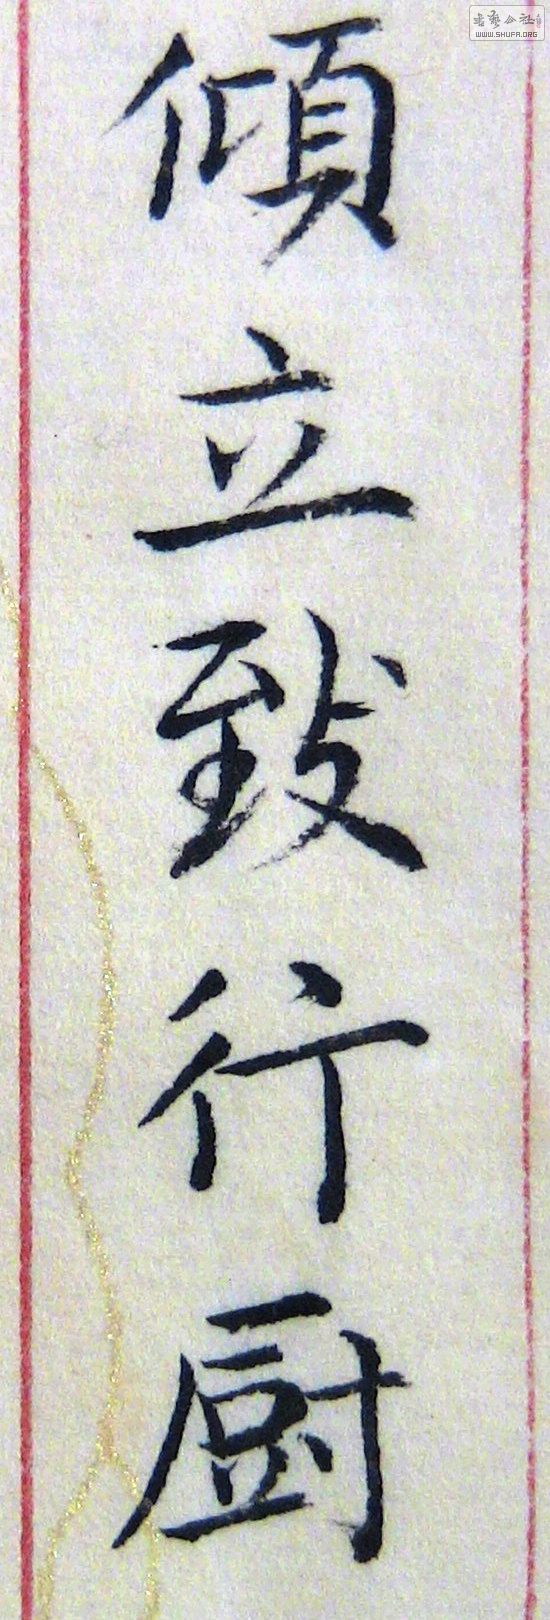 書藝公社
WWW.SHUFA.ORG
傾立致行厨